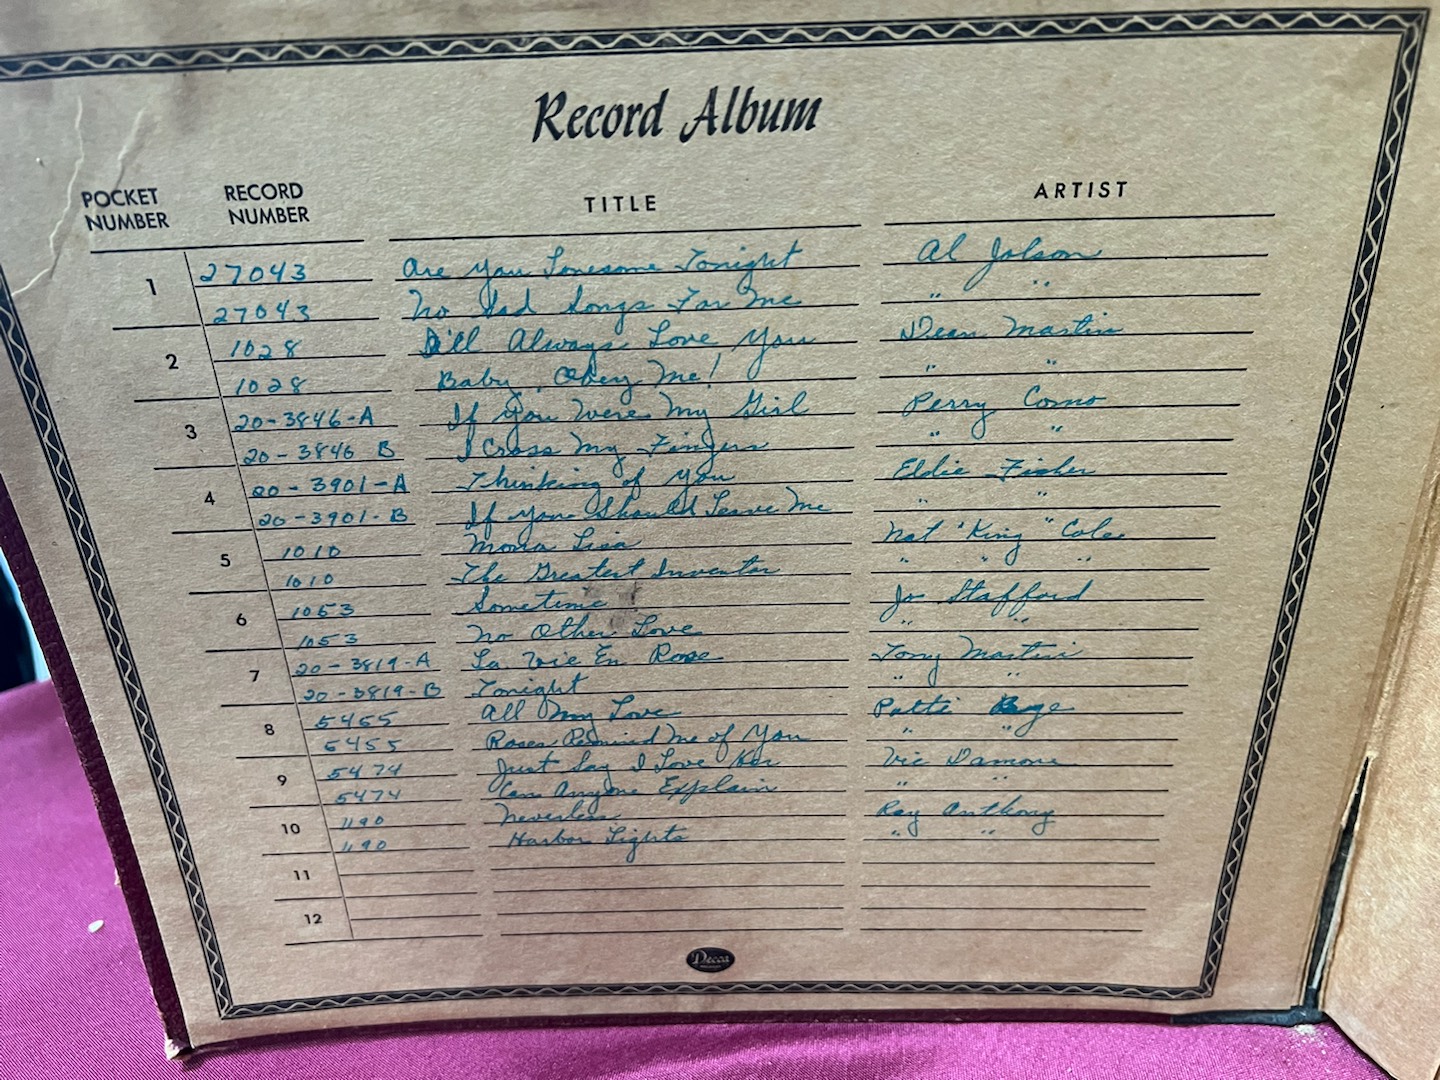 Record Album
POCKET NUMBER RECORD NUMBER TITLE ARTIST
1 27043 Are You Lonesome Tonight Al Jolson
27043 No Sad Songs For Me " "
2 1028 I'll Always Love You Dean Martin
1028 Baby, Obey Me! " "
3 20-3846-A If You Were My Girl Perry Como
20-3846 B I Cross My Fingers " "
4 20-3901-A Thinking of You Eddie Fisher
20-3901-B If You Should Leave Me " "
5 1010 Mona Lisa Nat "King" Cole
1010 The Greatest Inventor " " "
6 1053 Sometime Jo Stafford
1053 No Other Love " "
7 20-3819-A La Vie En Rose Tony Martin
20-3819-B Tonight " "
8 5455 All My Love Patti Page
5455 Roses Remind Me of You " "
9 5474 Just Say I Love Her Vic Damone
5474 Can Anyone Explain " "
10 1190 Ray Anthony
1190 Harbor Lights " "
11
12
Decca